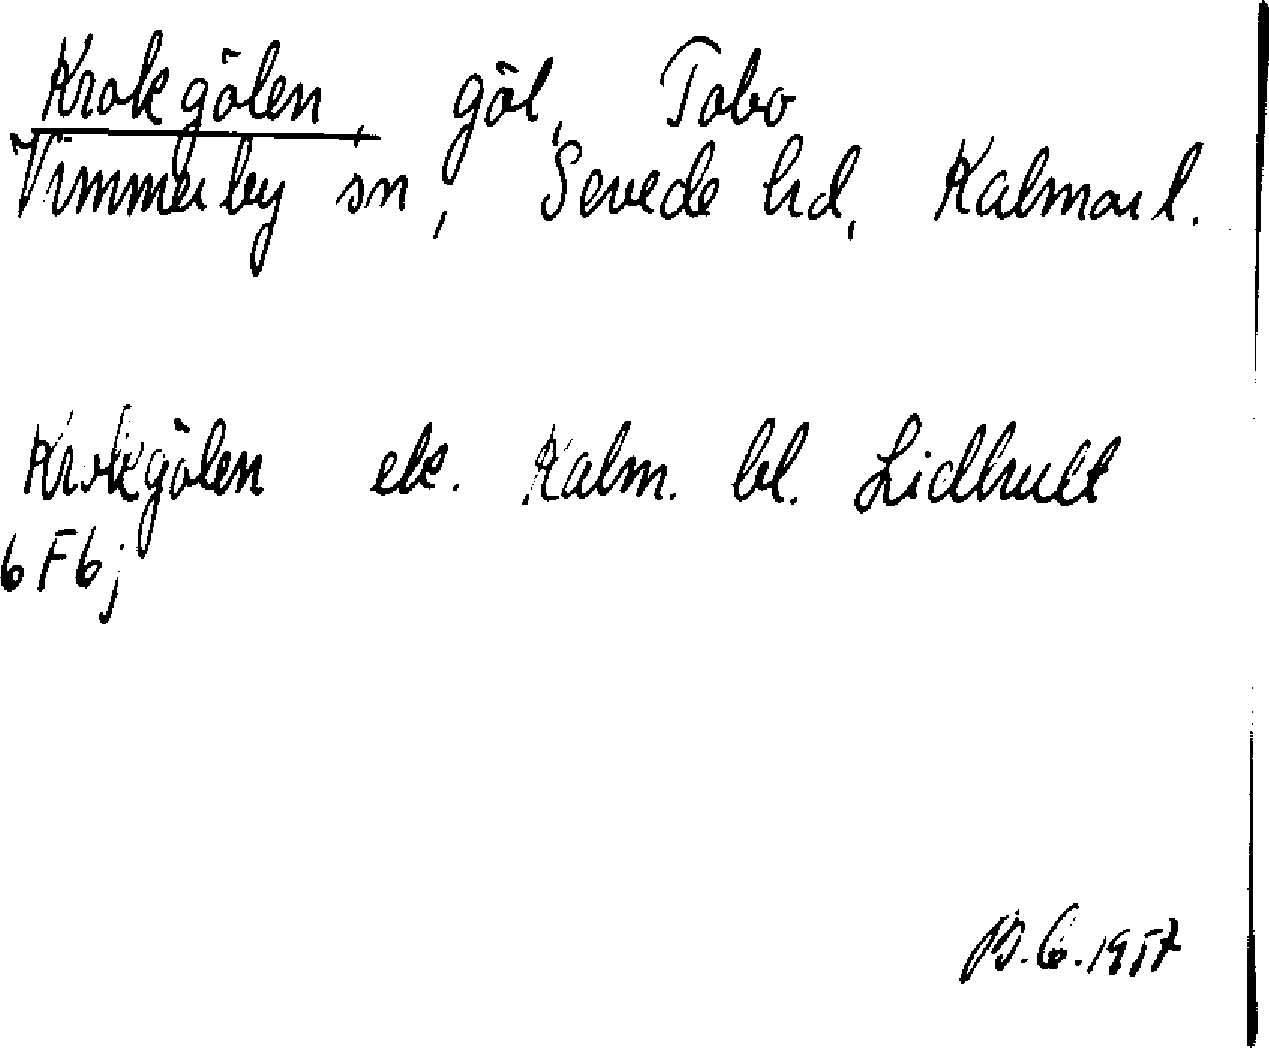 Krokgölen, göl, Tobo
Vimmerby sn, Sevede hd, Kalmar l.
Krokgölen ek. Kalm. bl. Lidhult
6F6j
B.G. 1957